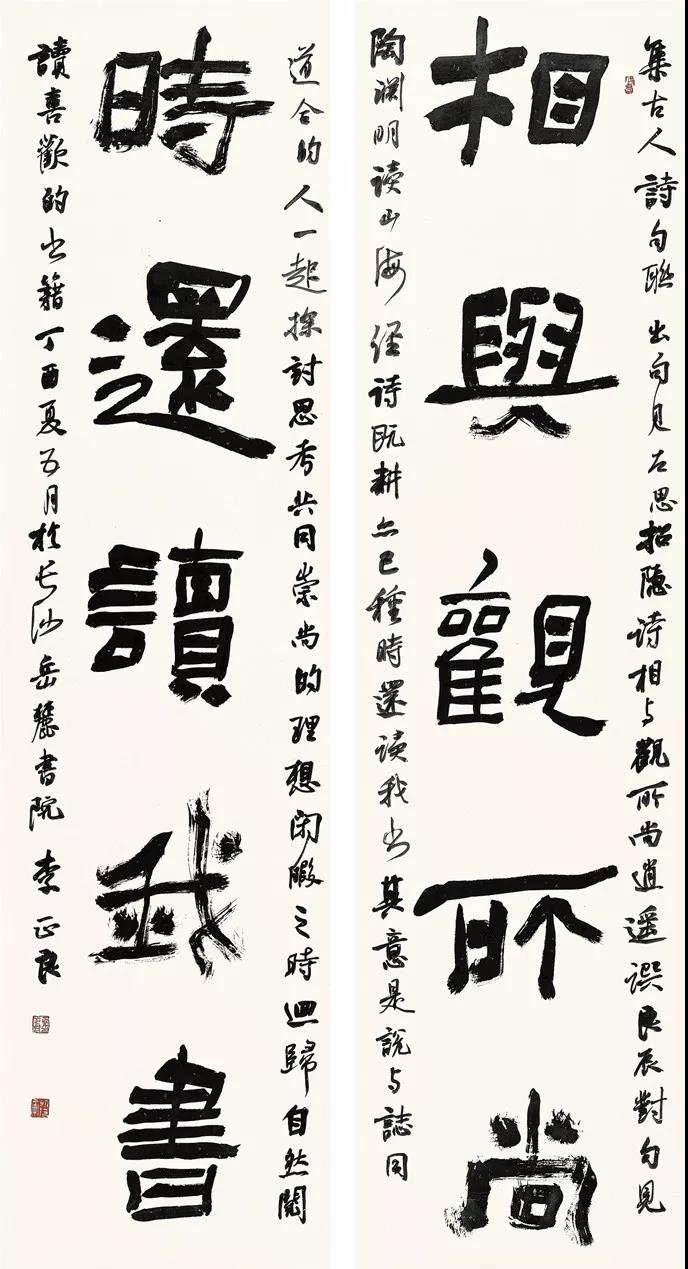 集古人詩句聯出句見左思招隐诗相与觀所尚逍遥譔良辰對句見
相與觀所尚
陶渊明读山海经诗既耕亦已種時還读我书其意是說与誌同
道合的人一起探討思考共同崇尚的理想闲暇之時迴歸自然閱
時還讀我書
讀喜歡的书籍丁酉夏五月於长沙岳麓書院李正良